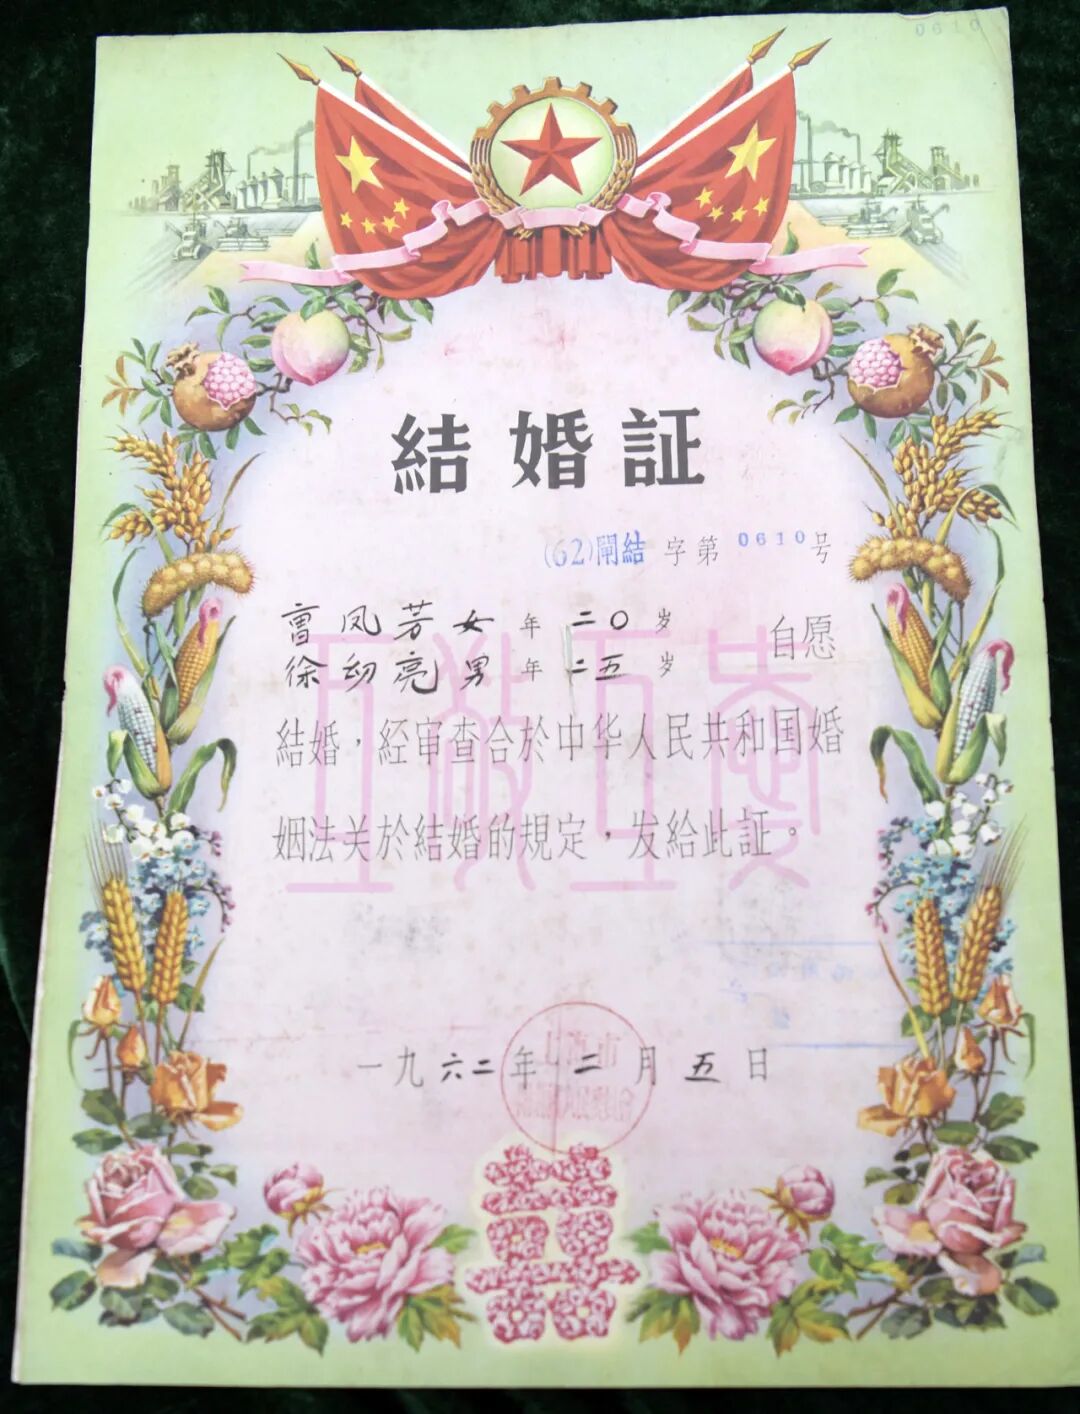 0610
結婚証
(62)閘結 字第 0610号
曹凤芳女 年 二〇 岁
徐幼亮男 年 二五 岁
自愿
結婚，经审查合於中华人民共和国婚
姻法关於結婚的規定，发給此証。
互敬互愛
一九六二年二月五日
上海市
囍